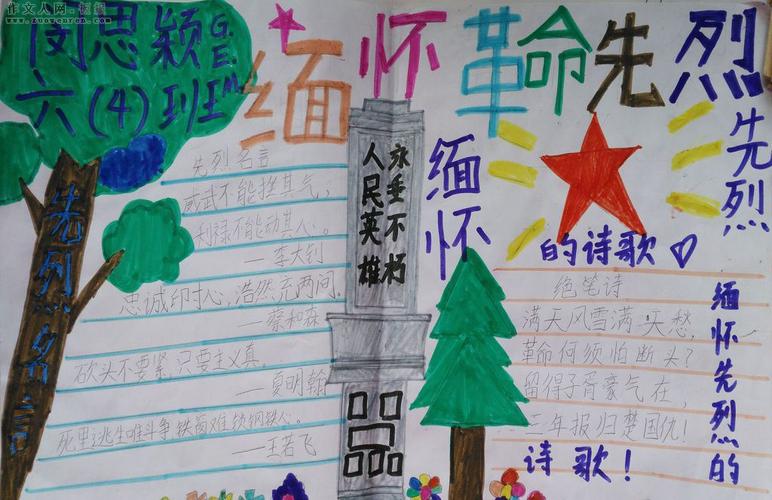 作文人网·板报
www.zuowenren.com
闵思颖
六(4)班
G.E.M
缅怀革命先烈
先烈名言
威武不能挫其气,
利禄不能动其心。
——李大钊
忠诚印寸心,浩然充两间.
——蔡和森
砍头不要紧,只要主义真.
——夏明翰
死里逃生唯斗争,铁窗难锁钢铁心。
——王若飞
先烈名言
人民英雄
永垂不朽
缅怀
先烈
的诗歌
绝笔诗
满天风雪满天愁,
革命何须怕断头?
留得子胥豪气在,
三年报归楚国仇!
缅怀先烈的
诗歌!